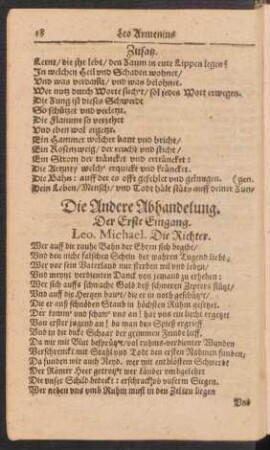 18 Leo Armenius
Zusatz.
Lernt / die ihr lebt / den Zaum in eure Lippen legen!
In welchen Heil und Schaden wohnet /
Und was verdamt / und was belohnet.
Wer nutz durch Worte sucht / sol jedes Wort erwegen.
Die Zung ist dieses Schwerdt
So schützet und verletzt.
Die Flamme so verzehrt
Und eben wol ergetzt.
Ein Hammer welcher baut und bricht /
Ein Rosenzweig / der reucht und sticht /
Ein Strom der träncket und erträncket:
Die Artzney welch' erquickt und kräncket.
Die Bahn: auff der es offt gefehlet und gelungen. (gen.
Dein Leben / Mensch / und Todt hält stäts auff deiner Zun-
Die Andere Abhandelung.
Der Erste Eingang.
Leo. Michael. Die Richter.
Wer auff die rauhe Bahn der Ehren sich begibt /
Und den nicht falschen Schein der wahren Tugend liebt,
Wer vor sein Vaterland nur sterben wil und leben /
Und meynt verdienten Danck von jemand zu erheben:
Wer sich auffs schwache Gold deß schweren Zepters stützt /
Und auff die Hertzen baut / die er in noth geschützt /
Die er auß schnödem Staub in höchsten Ruhm gesetzet.
Der komm' und schaw' uns an! hat ich von erster
Von erster jugend an! da man den Spieß ergriff
Und in die dicke Schaar der grimmen Feinde lieff.
Da wir mit Blut besprützt / vol ruhms-verdienter Wunden
Verschrenckt mit Stahl und Todt den ersten Nahmen funden /
Da funden wir auch Neyd. wer mit entblöstem Schwerdt
Der Römer Heer getrotzt wer länder umbgekehrt
Die unser Schild bedeckt: erschrack ob unserm Siegen.
Wer neben uns umb Ruhm must in den Zelten liegen
Und